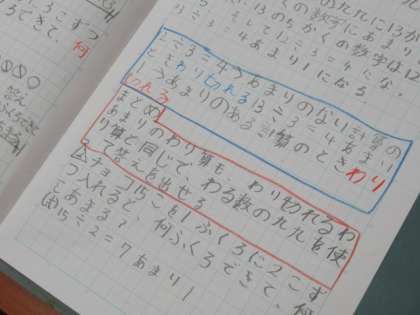 こずつ
できて、何
九九に13が
数字にあまり
13のちかくの数字は
そして12÷3=4にな
÷3=4あまり1になる
÷3=4うあまりのない計算の
ときわり切れる13÷3=4あまり
1うあまりのある計算のときわり
切れる
まとめ
あまりのわり算も、わり切れるわ
り算と同じで、わる数の九九を使
って答えを出せる
チョコ15こを1ふくろに2こず
つ入れると、何ふくろできて、何
こあまる?
15÷2=7あまり1